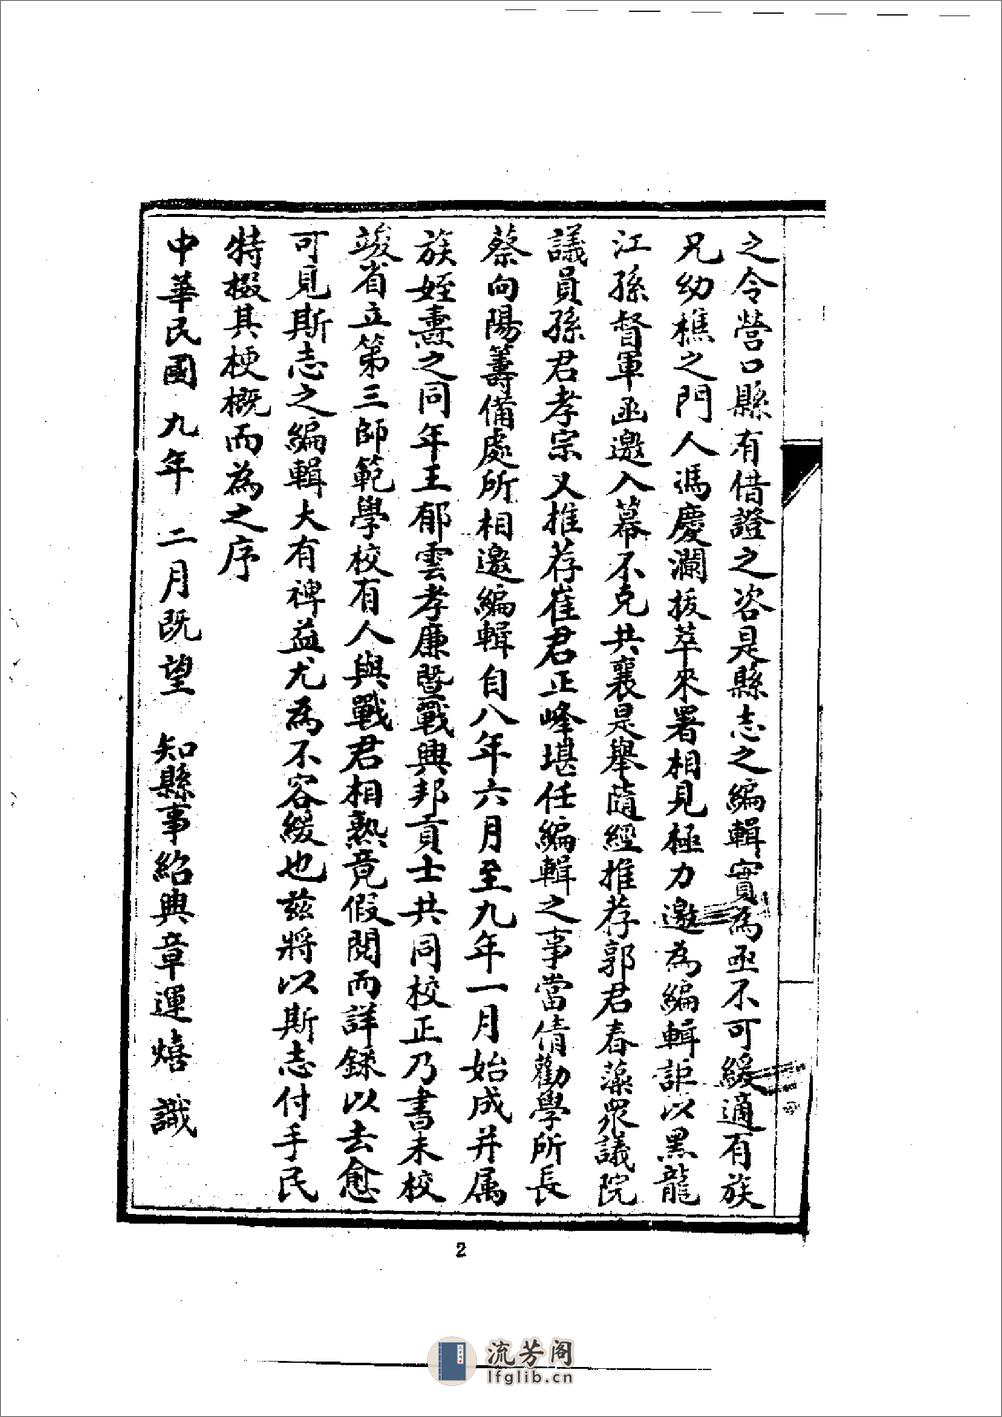 之令營口縣有借證之咨是縣志之編輯實為亟不可緩適有族
兄幼樵之門人馮慶瀾拔萃來署相見極力邀為編輯詎以黑龍
江孫督軍函邀入幕不克共襄是舉隨經推荐郭君春藻眾議院
議員孫君孝宗又推荐崔君正峰堪任編輯之事當倩勸學所長
蔡向陽籌備處所相邀編輯自八年六月至九年一月始成并属
族姪燾之同年王郁雲孝廉暨戰興邦貢士共同校正乃書未校
竣省立第三師範學校有人與戰君相熟竟假閱而詳錄以去愈
可見斯志之編輯大有裨益尤為不容緩也茲將以斯志付手民
特掇其梗概而為之序
中華民國九年 二月既望 知縣事紹興章運熺識
2
流芳阁
lfglib.cn